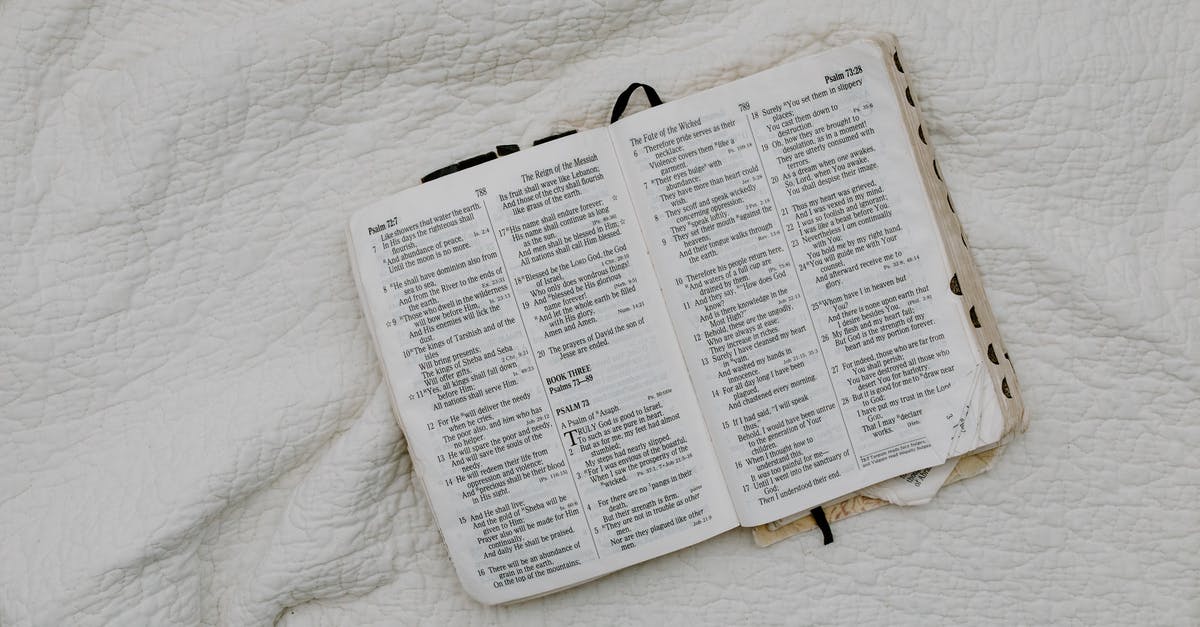 Psalm 72:7
788
The Reign of the Messiah
Like showers that water the earth.
7 In His days the righteous shall
flourish,
And abundance of peace,
Is. 2:4
Until the moon is no more.
8 He shall have dominion also from
sea to sea,
And from the River to the ends of
the earth.
☆9 Those who dwell in the wilderness
will bow before Him,
Is. 23:13
And His enemies will lick the
dust.
10 The kings of Tarshish and of the
isles
Will bring presents;
The kings of Sheba and Seba
Will offer gifts.
2 Chr. 9:21
☆11 Yes, all kings shall fall down
before Him;
Is. 49:23
All nations shall serve Him.
12 For He will deliver the needy
when he cries,
The poor also, and him who has
no helper.
Job 29:12
13 He will spare the poor and needy,
And will save the souls of the
needy.
14 He will redeem their life from
oppression and violence;
And precious shall be their blood
in His sight.
15 And He shall live;
And the gold of Sheba will be
given to Him;
Prayer also will be made for Him
continually,
And daily He shall be praised.
16 There will be an abundance of
grain in the earth,
On the top of the mountains;
Its fruit shall wave like Lebanon;
And those of the city shall flourish
like grass of the earth.
☆
17 His name shall endure forever;
His name shall continue as long
as the sun.
☆
And men shall be blessed in Him;
All nations shall call Him blessed.
18 Blessed be the LORD God, the God
of Israel,
1 Chr. 29:10
Who only does wondrous things!
19 And blessed be His glorious
name forever!
And let the whole earth be filled
with His glory.
Num. 14:21
Amen and Amen.
20 The prayers of David the son of
Jesse are ended.
BOOK THREE
Psalms 73—89
PSALM 73
A Psalm of Asaph.
TRULY God is good to Israel,
To such as are pure in heart.
2 But as for me, my feet had almost
stumbled;
My steps had nearly slipped.
3 For I was envious of the boastful,
When I saw the prosperity of the
wicked.
4 For there are no pangs in their
death,
But their strength is firm.
5 They are not in trouble as other
men,
Nor are they plagued like other
men.
Job 21:9
The Fate of the Wicked
789
Psalm 73:28
6 Therefore pride serves as their
necklace;
Violence covers them like a
garment.
Ps. 109:18
7 Their eyes bulge with
abundance;
They have more than heart could
wish.
Jer. 5:28
8 They scoff and speak wickedly
concerning oppression;
They speak loftily.
2 Pet. 2:18
9 They set their mouth against the
heavens,
And their tongue walks through
the earth.
Rev. 13:6
10 Therefore his people return here,
And waters of a full cup are
drained by them.
11 And they say, "How does God
know?
And is there knowledge in the
Most High?"
Job 22:13
12 Behold, these are the ungodly,
Who are always at ease;
They increase in riches.
13 Surely I have cleansed my heart
in vain,
And washed my hands in
innocence.
14 For all day long I have been
plagued,
And chastened every morning.
15 If I had said, "I will speak
thus,"
Behold, I would have been untrue
to the generation of Your
children.
16 When I thought how to
understand this,
It was too painful for me—
17 Until I went into the sanctuary of
God;
Then I understood their end.
18 Surely You set them in slippery
places;
You cast them down to
destruction.
Ps. 35:6
19 Oh, how they are brought to
desolation, as in a moment!
They are utterly consumed with
terrors.
20 As a dream when one awakes,
So, Lord, when You awake,
You shall despise their image.
21 Thus my heart was grieved,
And I was vexed in my mind.
22 I was so foolish and ignorant;
I was like a beast before You.
23 Nevertheless I am continually
with You;
You hold me by my right hand.
24 You will guide me with Your
counsel,
And afterward receive me to
glory.
Ps. 32:8
25 Whom have I in heaven but
You?
And there is none upon earth that
I desire besides You.
26 My flesh and my heart fail;
But God is the strength of my
heart and my portion forever.
27 For indeed, those who are far from
You shall perish;
You have destroyed all those who
desert You for harlotry.
28 But it is good for me to draw near
to God;
I have put my trust in the Lord
GOD,
That I may declare
works.